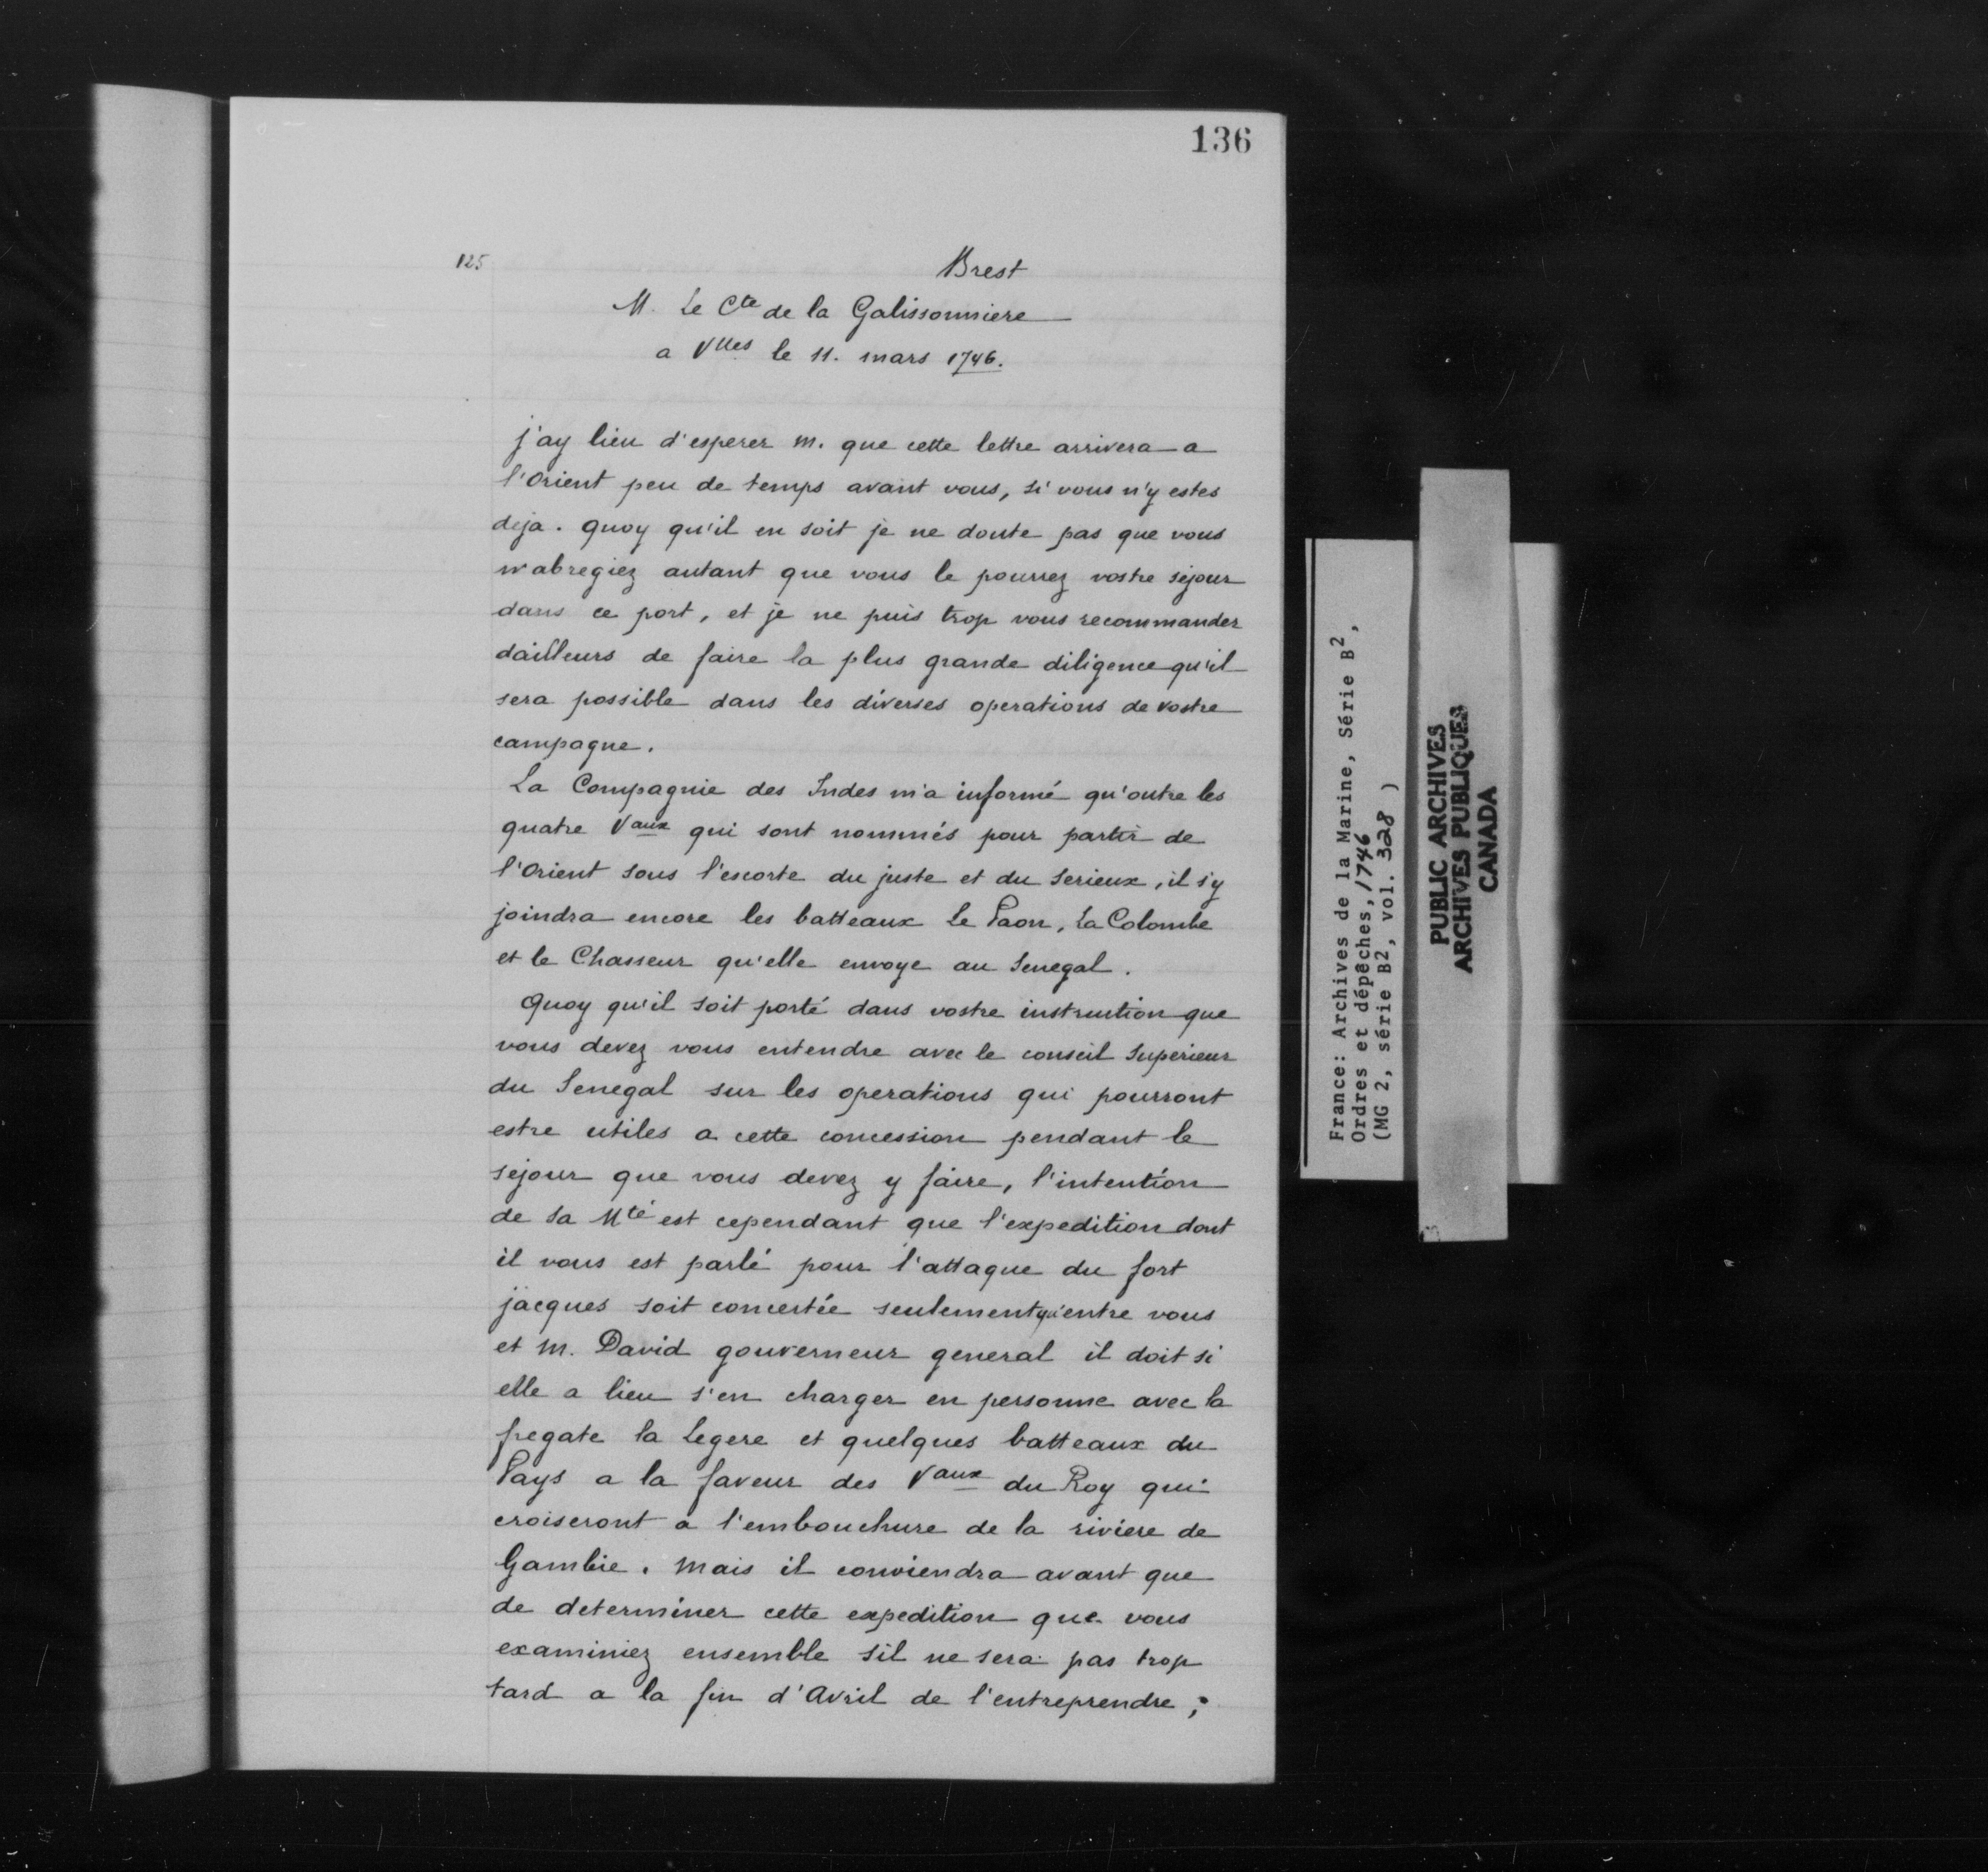 136
125
Brest
M. Le Cte de la Galissonniere
a Vlles le 11. mars 1746.
j'ay lieu d'esperer m. que cette lettre arrivera a
l'Orient peu de temps avant vous, si vous n'y estes
deja. quoy qu'il en soit je ne doute pas que vous
n'abregiez autant que vous le pourrez vostre séjour
dans ce port, et je ne puis trop vous recommander
dailleurs de faire la plus grande diligence qu'il
sera possible dans les diverses operations de vostre
campagne.
La Compagnie des Indes m'a informé qu'outre les
quatre Vaux qui sont nommés pour partir de
l'Orient sous l'escorte du juste et du Serieux, il s'y
joindra encore les batteaux Le Paon, La Colombe
et le Chasseur qu'elle envoye au Senegal.
Quoy qu'il soit porté dans vostre instruction que
vous devez vous entendre avec le conseil Superieur
du Senegal sur les operations qui pourront
estre utiles a cette concession pendant le
séjour que vous devez y faire, l'intention
de Sa Mté est cependant que l'expedition dont
il vous est parlé pour l'attaque du fort
jacques soit concertée seulement qu'entre vous
et M. David gouverneur general il doit si
elle a lieu s'en charger en personne avec la
fregate la Legere et quelques batteaux du
Pays a la faveur des Vaux du Roy qui
croiseront a l'embouchure de la riviere de
Gambie. Mais il conviendra avant que
de determiner cette expedition que vous
examiniez ensemble s'il ne sera pas trop
tard a la fin d'Avril de l'entreprendre;
France: Archives de la Marine, Série B2,
Ordres et dépêches, 1746
(MG 2, série B2, vol. 328 )
PUBLIC ARCHIVES
ARCHIVES PUBLIQUES
CANADA